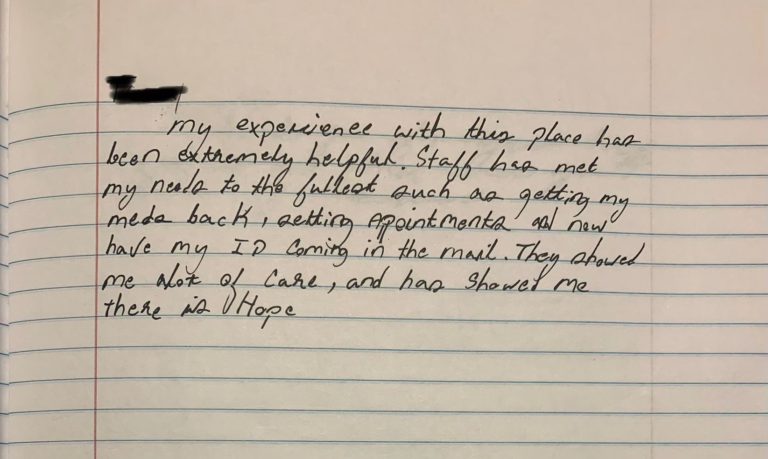 my experience with this place has
been extremely helpful. Staff has met
my needs to the fullest such as getting my
meds back, setting apointments and now
have my ID coming in the mail. They showed
me alot of care, and has showed me
there is Hope